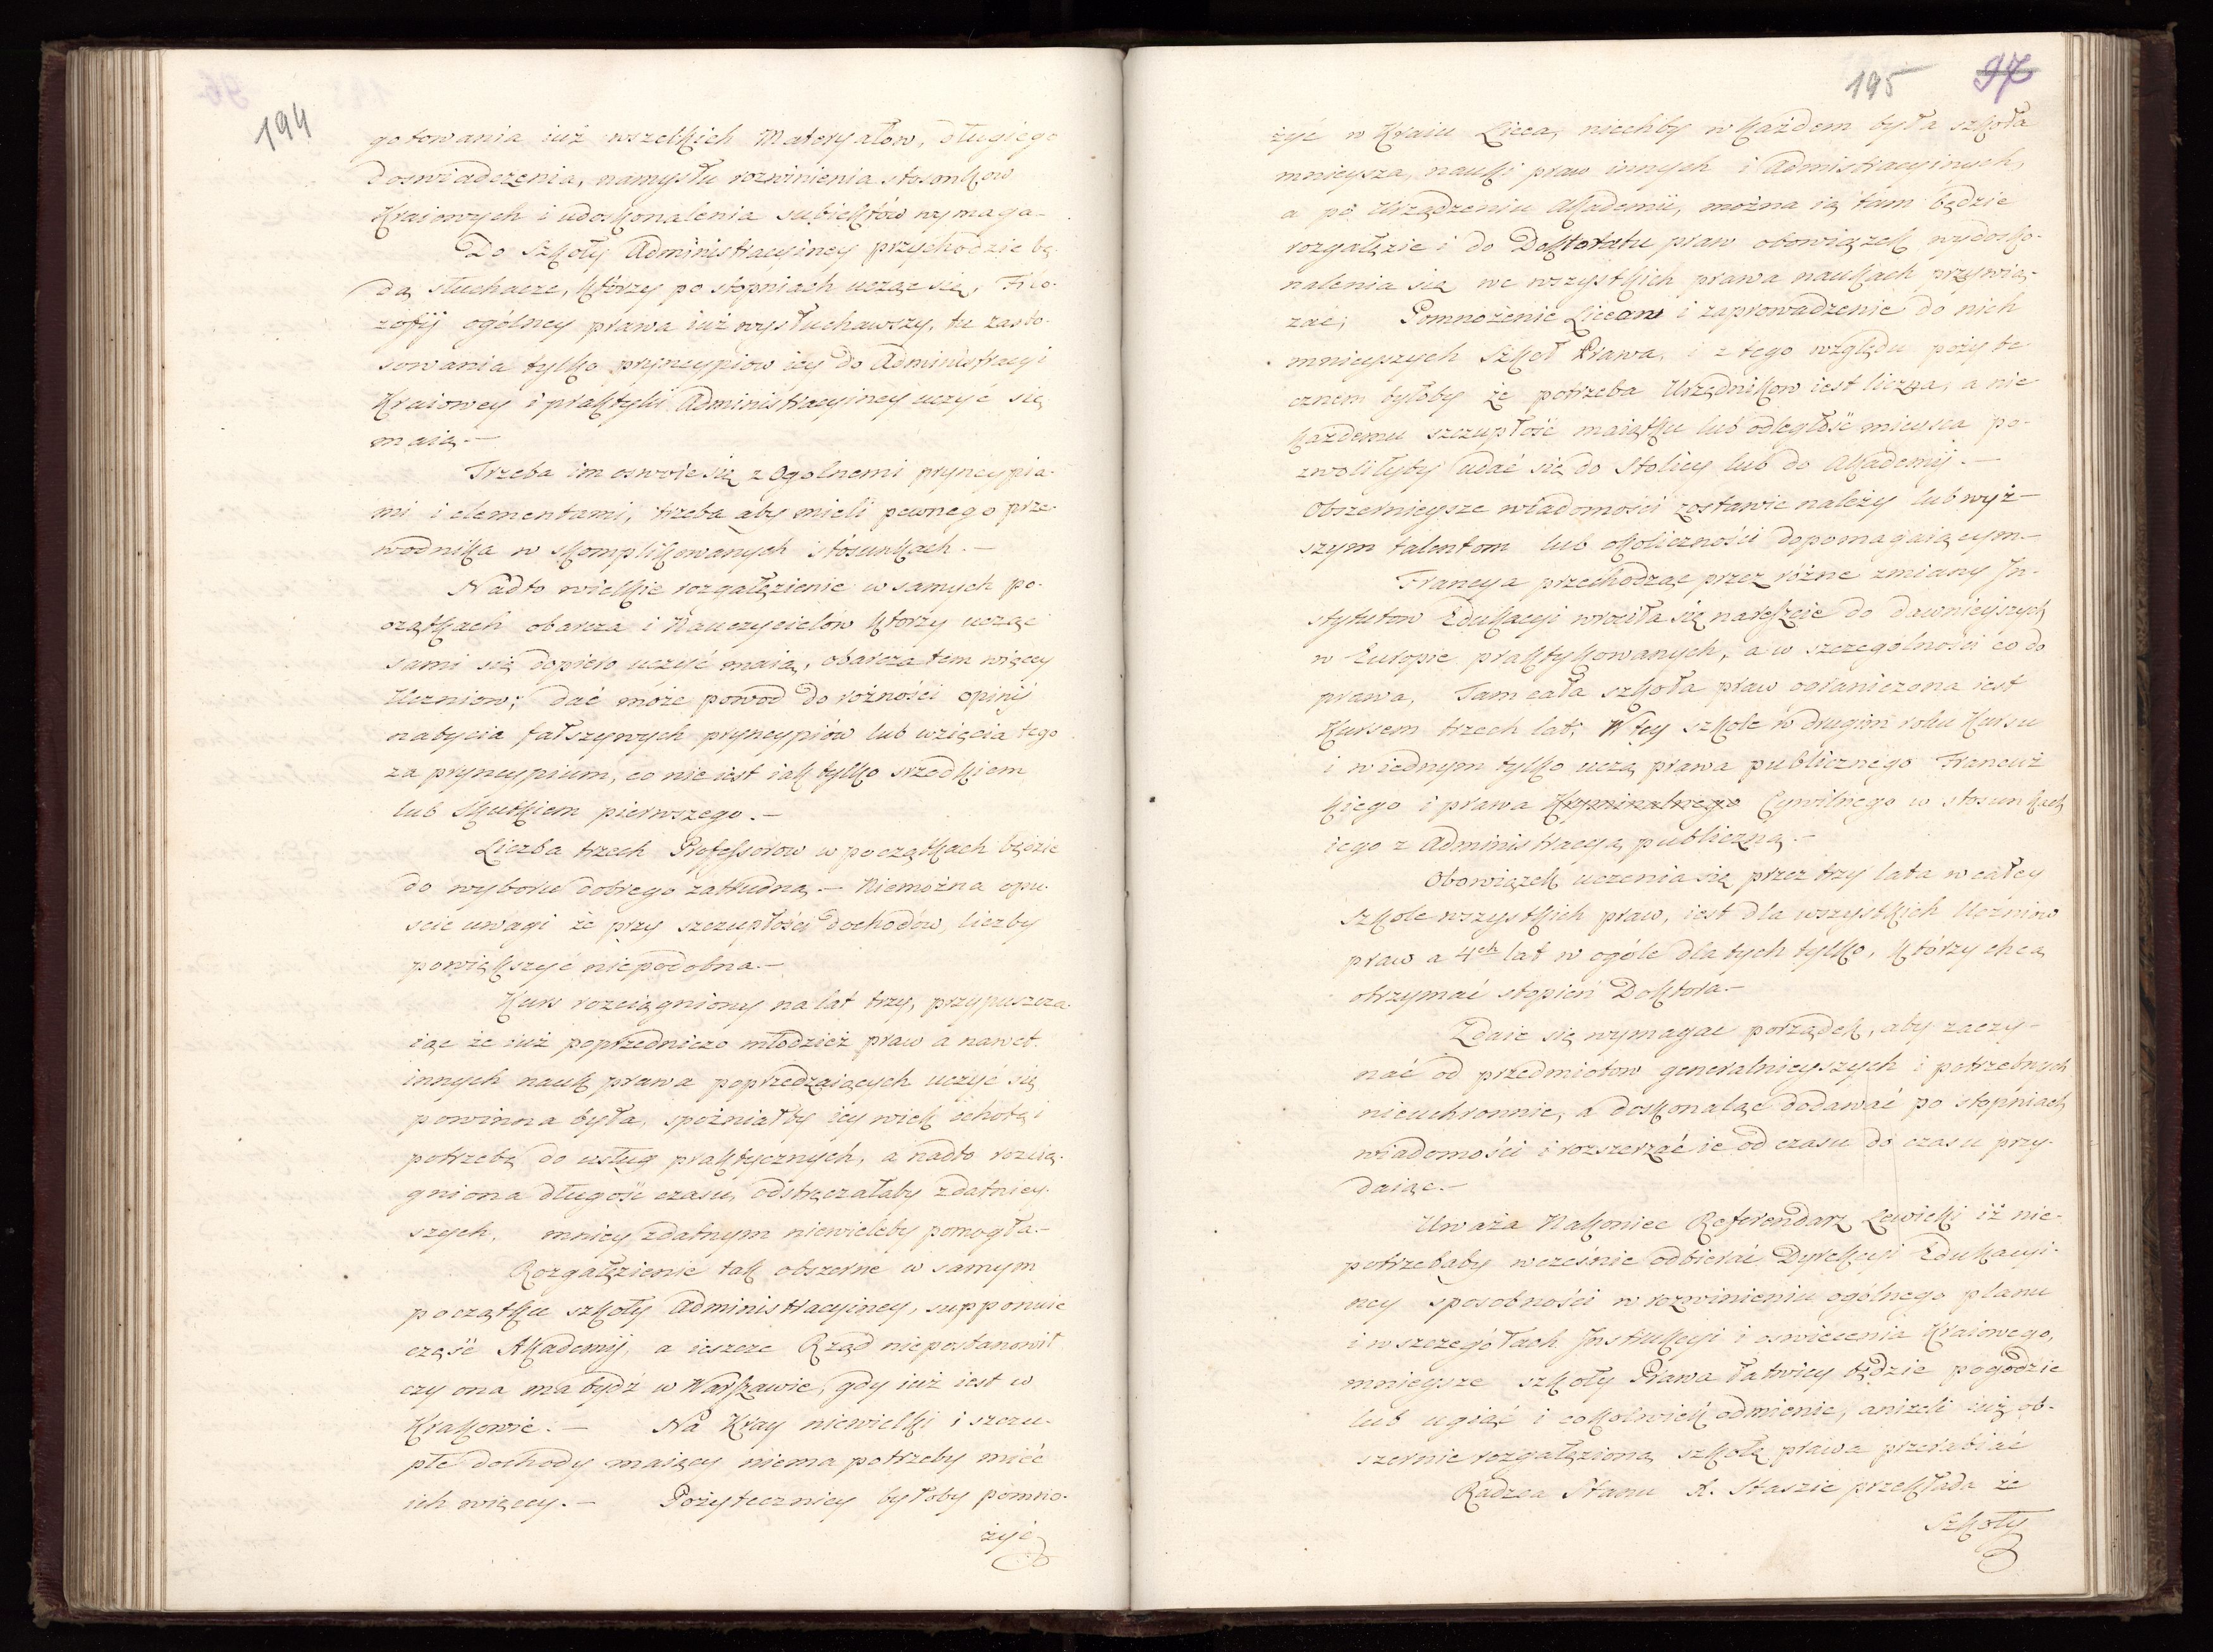 194
gotowania iuż wszelkich Materyałów, długiego
doswiadczenia, namysłu rozwinienia stosonkow
Kraiowych i udoskonalenia subiektów wymaga-
Do Szkoły Administracyiney przychodzić bę-
dą słuchacze, którzy po stopniach ucząc się, Filo-
zofij ogólney prawa iuż wysłuchawszy, tu zasto-
sowania tylko pryncypiow iey do Administracyi
Kraiowey i praktyki Administracyiney uczyć się
maią.—
Trzeba im oswoić się z Ogolnemi pryncypia-
mi i elementami, trzeba aby mieli pewnego prze-
wodnika w skomplikowanych stósunkach.—
Nadto wielkie rozgałęzienie w samych po-
czątkach obarcza i Nauczycielów którzy ucząc
sami się dopiero uczyć maią, obarcza tem więcey
Uczniow; dać może powod do rożności opinij
nabycia fałszywych pryncypiów lub wzięcia tego
za pryncypium, co nie iest iak tylko srzodkiem
lub Skutkiem pierwszego.—
Liczba trzech Professorow w początkach będzie
do wyboru dobrego zatrudną.— Niemożna opu-
scić uwagi że przy szczupłości dochodów, liczby
powiększyć niepodobna.—
Kurs rozciągniony na lat trzy, przypuszcza-
iąc że iuż poprzedniczo młodzież praw a nawet
innych nauk prawa poprzedzaiących uczyć się
powinna była, spóźniałby iey wiek ochotę i
potrzebę do usług praktycznych, a nadto rozcią-
gniona długość czasu, odstręczałaby zdatniey-
szych, mniey zdatnym niewieleby pomogła.—
Rozgałęzienie tak obszerne w samym
początku szkoły Administracyiney, supponuie
część Akademij, a ieszcze Rząd niepostanowił
czy ona ma bydź w Warszawie, gdy iuż iest w
Krakowie.— Na Kray niewielki i szczu-
płe dochody maiący niema potrzeby mieć
ich więcey.— Pożyteczniey byłoby pomno-
żyć
195 97
żyć w Kraiu Licea, niechby w każdem była szkoła
mnieysza, nauki praw innych i Admistracyinych,
a po Urządzeniu Akademii, można ią tam będzie
rozgałęzić i do Doktoratu praw obowiązek wydosko-
nalenia się we wszystkich prawa naukach przywią-
zać; Pomnożenie Liceow i zaprowadzenie do nich
mnieyszych Szkoł Prawa, i z tego względu pożyte-
cznem byłoby że potrzeba Urzędnikow iest liczna, a nie
każdemu szczupłość maiątku lub odległość mieysca po-
zwoliłyby udać się do Stolicy lub do Akademij.—
Obszernieysze wiadomości zostawić należy lub wyż-
szym talentom lub okoliczności dopomagaiącym.—
Francya przechodząc przez różne zmiany In-
stytutow Edukacyi wróciła się nareszcie do dawnieyszych
w Europie praktykowanych, a w szczególności co do
prawa, Tam cała szkoła praw ograniczona iest
Kursem trzech lat; W tey szkole w drugim roku Kursu
i w iednym tylko uczą prawa publicznego Francuz-
kiego i prawa Kryminalnego Cywilnego w stosunkach
iego z Administracyą publiczną.—
Obowiązek uczenia się przez trzy lata w całey
Szkole wszystkich praw, iest dla wszystkich Uczniow
praw a 4ch lat w ogóle dla tych tylko, którzy chcą
otrzymać stopień Doktora.—
Zdaie się wymagać porządek, aby zaczy-
nać od przedmiotow generalnieyszych i potrzebnych
nieuchronnie, a doskonaląc dodawać po stopniach
wiadomości i rozszerzać ie od czasu do czasu przy-
daiąc.—
Uważa Nakoniec Referendarz Lewicki iż nie-
potrzebaby wcześnie odbierać Dyrekcyi Edukacyi-
ney sposobności w rozwinieniu ogólnego planu
i w szczegółach Instrukcyi i oswiecenia Kraiowego,
mnieysze szkoły Prawa łatwiey będzie pogodzić
lub ugiąć i cokolwiek odmienić, aniżeli iuż ob-
szernie rozgałęzioną szkołę prawa przerabiać
Radzca Stanu X. Staszic przekłada że
Szkoły